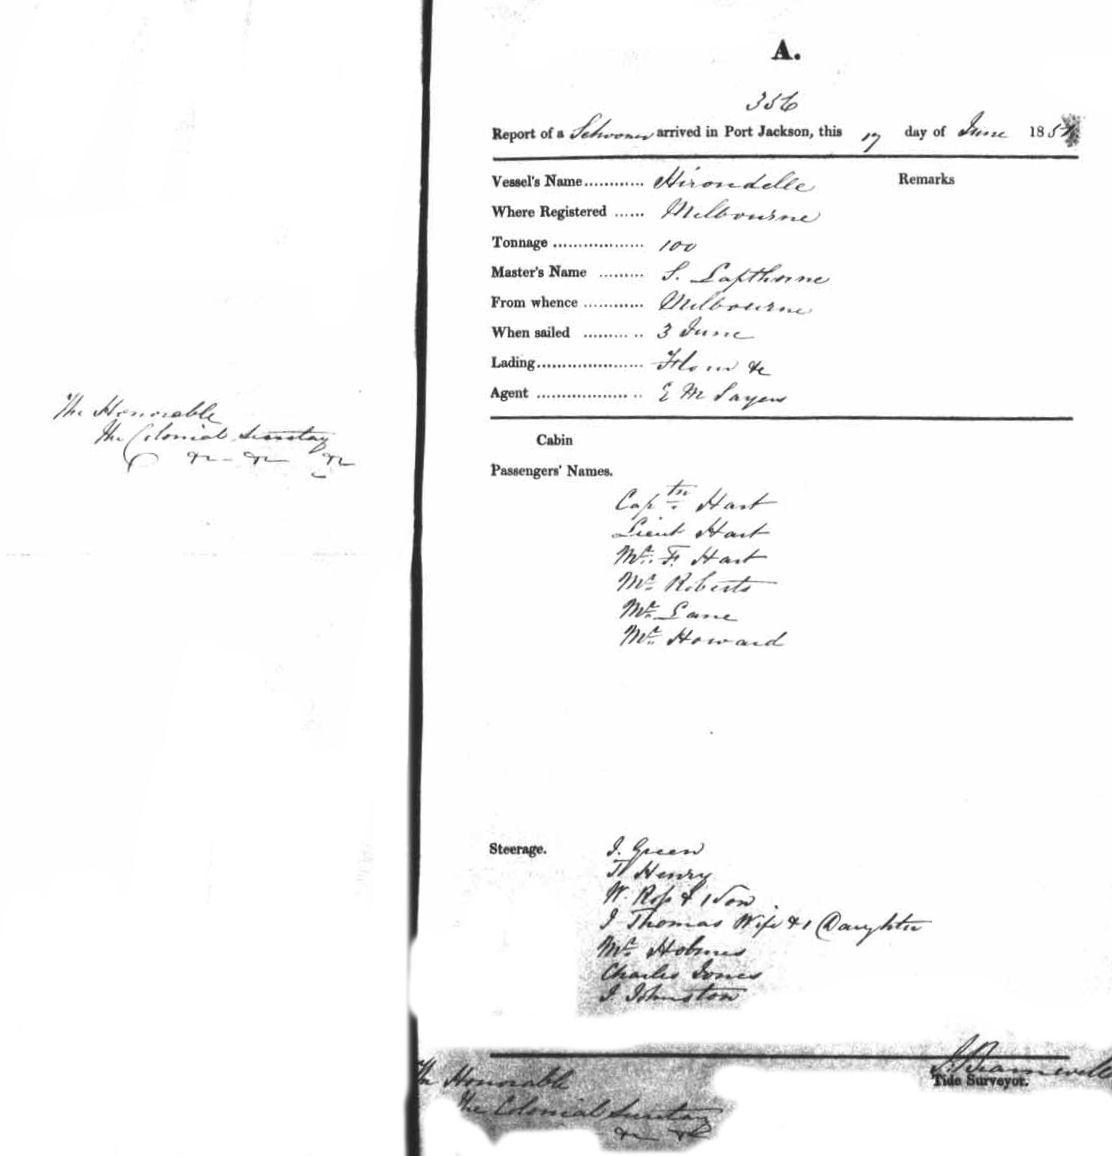 The Honorable
The Colonial Secretary
&c &c &c
A.
356
Report of a Schooner arrived in Port Jackson, this 17 day of June 185
Vessel's Name............ Hirondelle Remarks
Where Registered ...... Melbourne
Tonnage .................. 100
Master's Name ......... S. Lapthorne
From whence ............ Melbourne
When sailed ......... .. 3 June
Lading..................... Flour &c
Agent .................. .. E M Sayers
Cabin
Passengers' Names.
Captn. Hart
Lieut Hart
Mr. F. Hart
Mr. Roberts
Mr. Lane
Mr. Howard
Steerage. J. Green
T Henry
W. Ross & 1 Son
J Thomas Wife & 1 Daughter
Mr. Holmes
Charles Jones
J. Johnston
Tide Surveyor.
The Honorable
The Colonial Secretary
&c &c